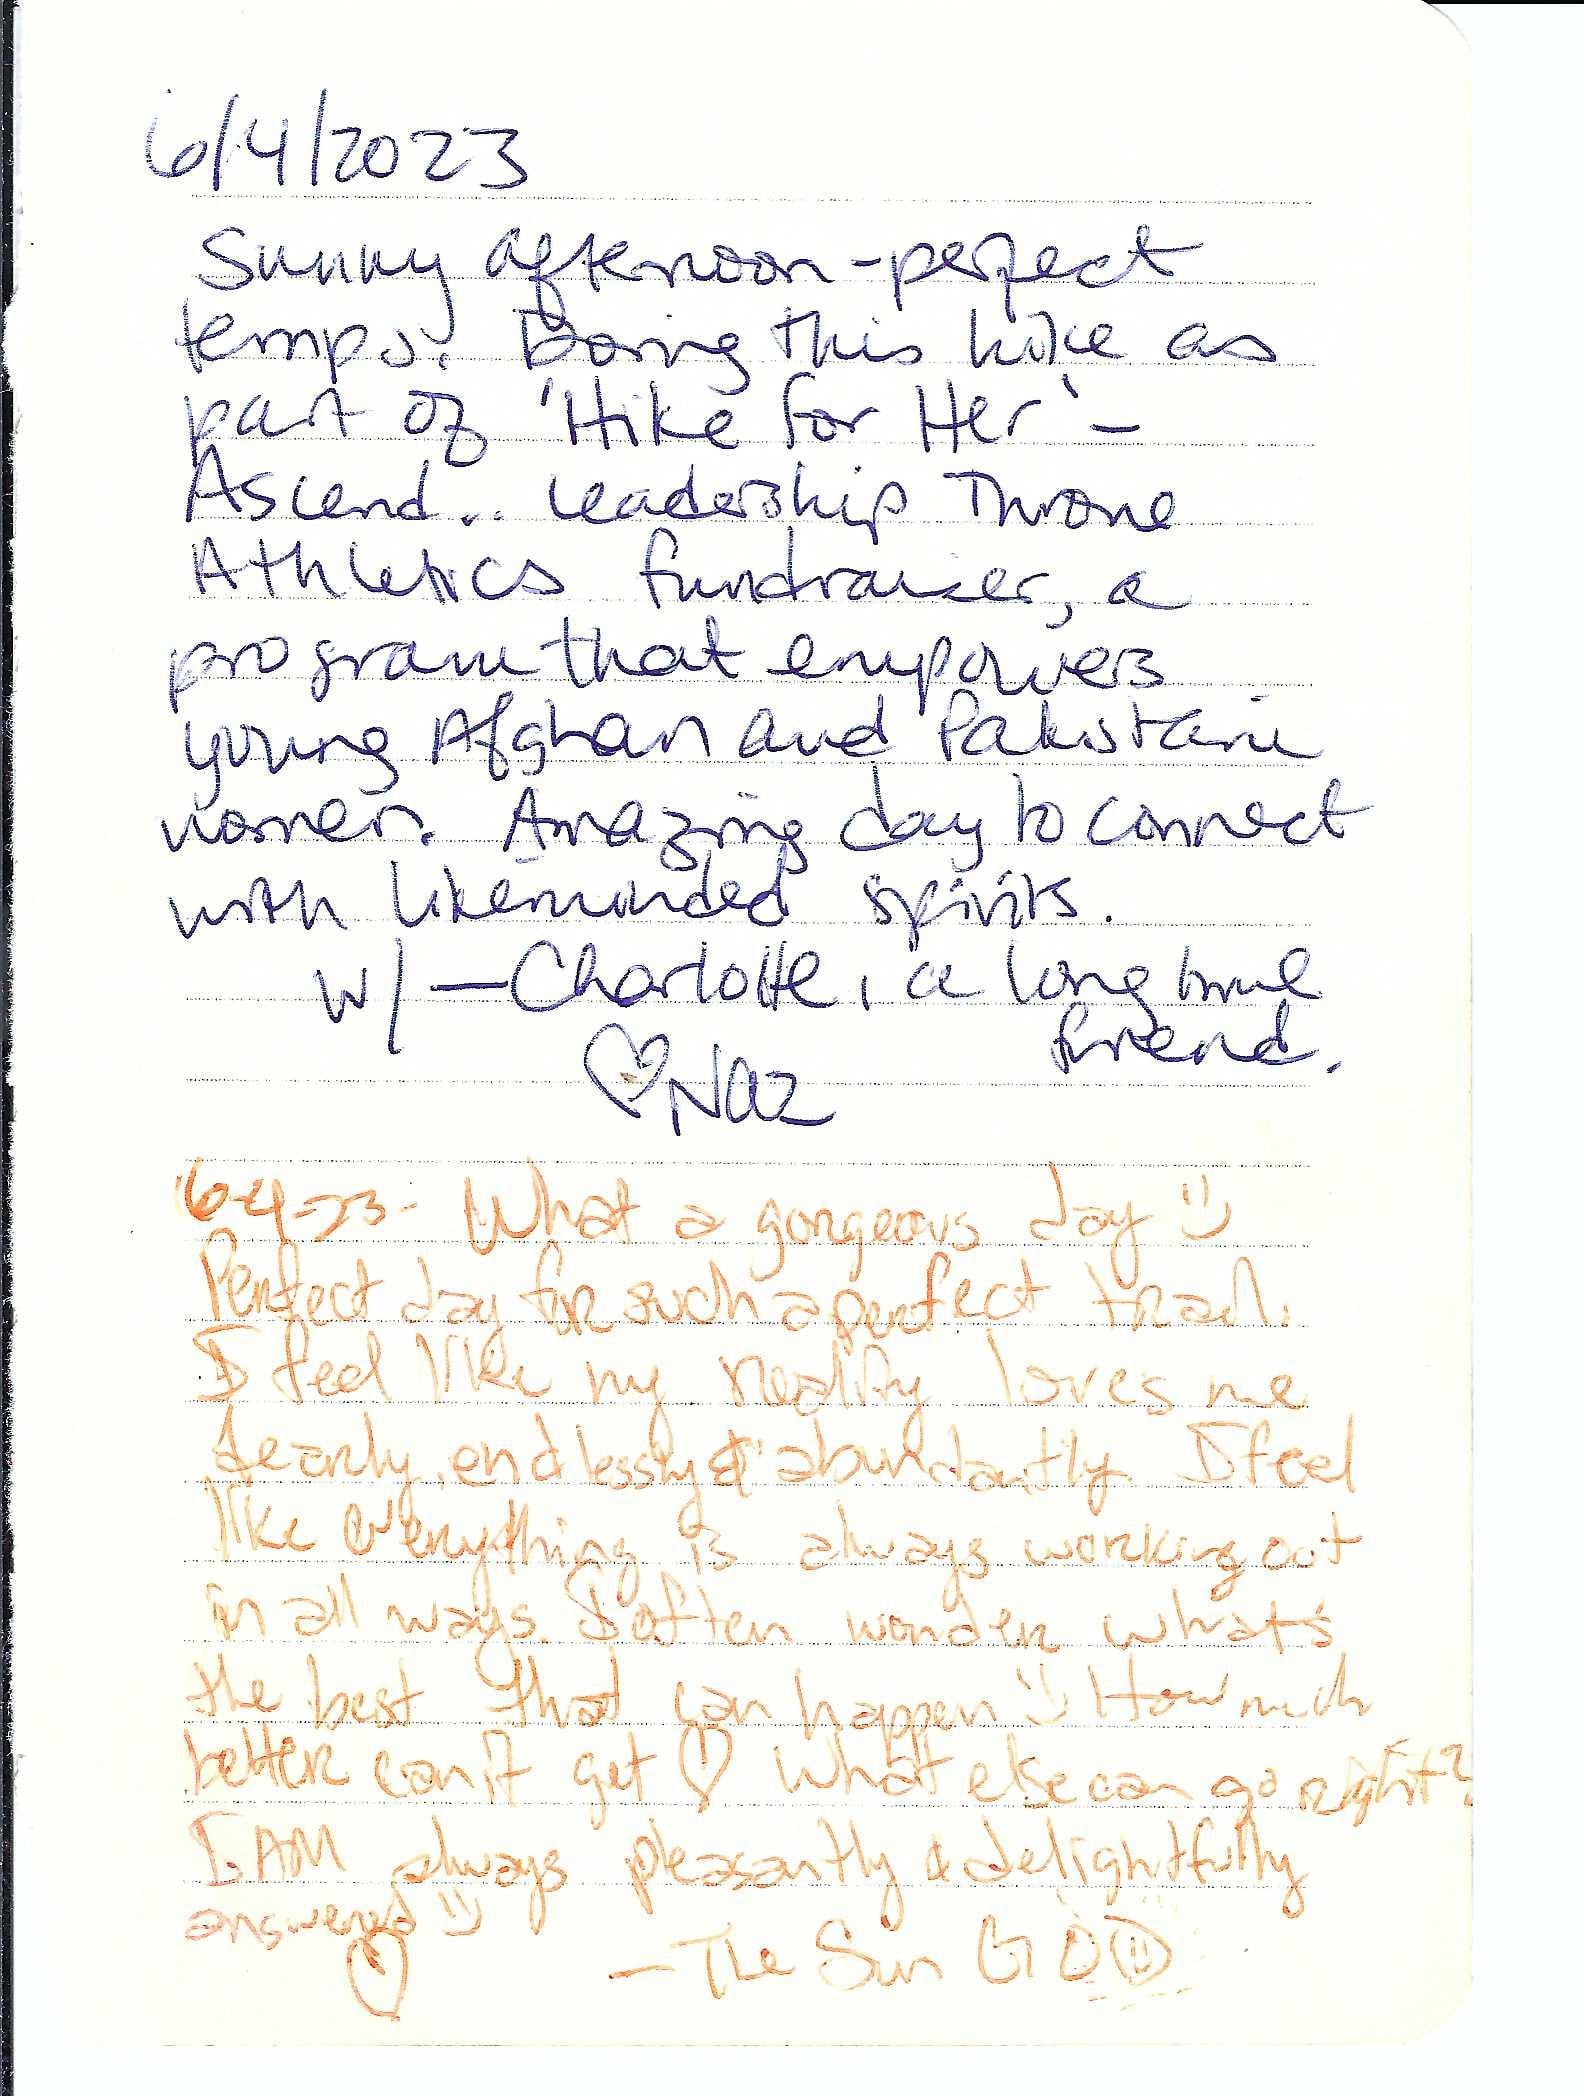 6/4/2023
Sunny afternoon - perfect
temps. Doing this hike as
part of 'Hike for Her' -
Ascend.. Leadership Throne
Athletics fundraiser, a
program that empowers
young Afghan and Pakistani
women. Amazing day to connect
with likeminded spirits.
w/ - Charlotte, a long time
friend.
♡ Naz
6-4-23 - What a gorgeous day :)
Perfect day for such a perfect trail.
I feel like my reality loves me
dearly, endlessly & abundantly. I feel
like everything is always working out
in all ways. I often wonder what's
the best that can happen :) How much
better can it get ♡ What else can go right?
I AM always pleasantly & delightfully
answered :)
♡ - The Sun GOD